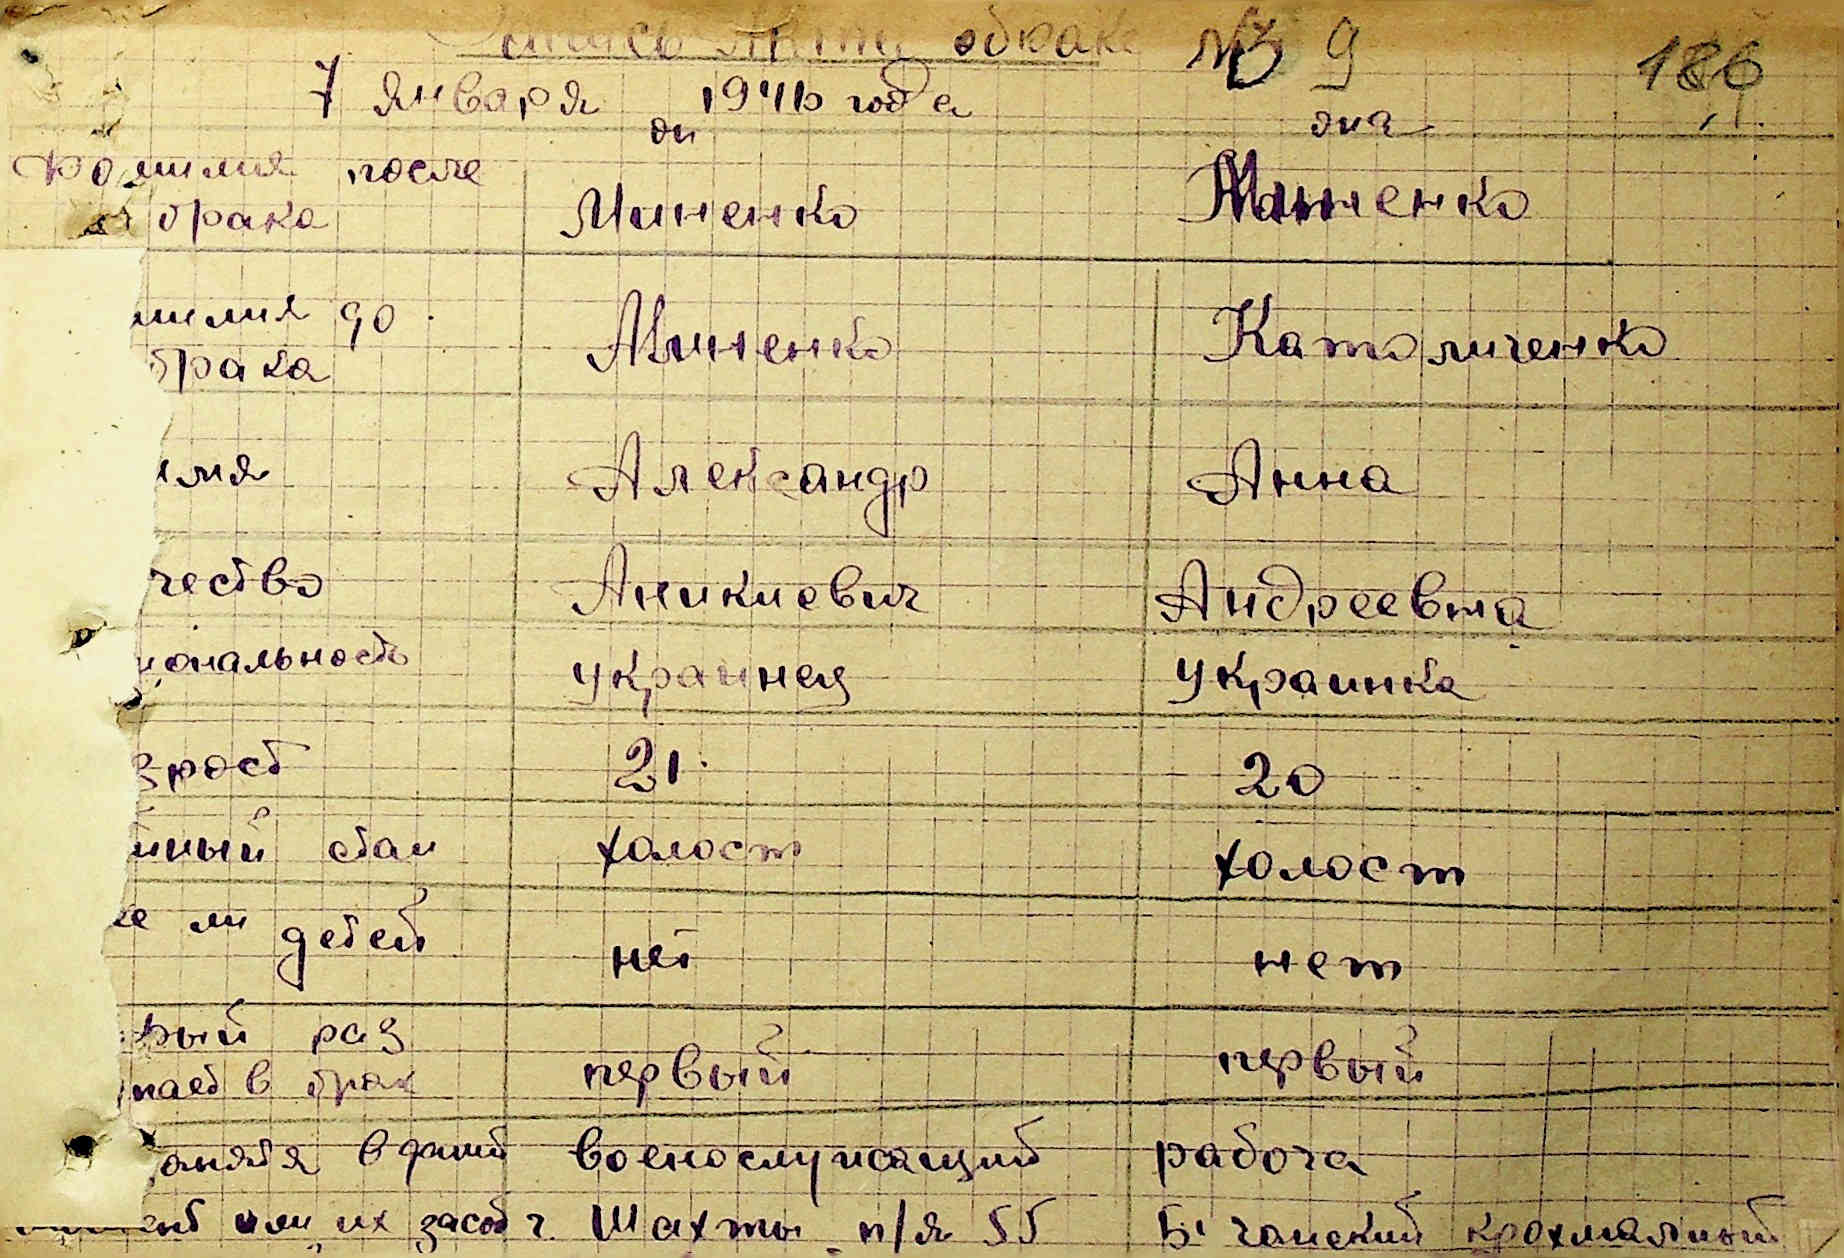 Запись акта о браке № 9 186
7 января 1946 года
он она
Фомилия после
брака Миненко Миненко
милия до
брака Миненко Католиченко
имя Александр Анна
чество Аникиевич Андреевна
иональность украинец украинка
зрост 21 20
йный стан холост холост
ли детей нет нет
рый раз
пает в брак первый первый
анятя в даний военослужащий работа
мент или их засоб г. Шахты п/я 55 крохмальный